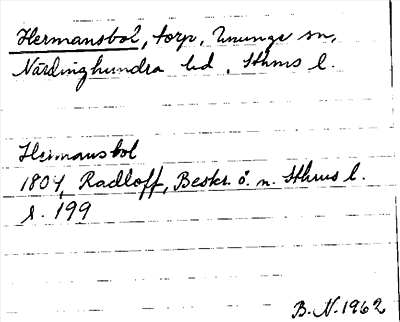 Hermansbol, torp, Ununge sn,
Närdinghundra hd, Sthms l.
Heimansbol
1804, Radloff, Beskr. ö. n. Sthms l.
s. 199
B.N. 1962